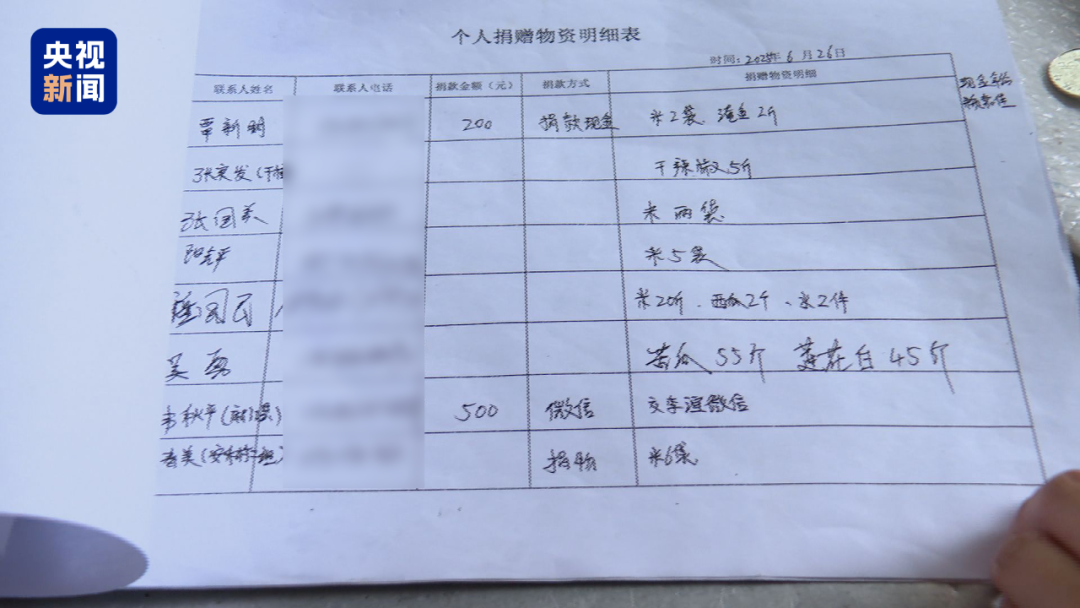 央视
新闻
个人捐赠物资明细表
时间：2025年6月26日
联系人姓名 联系人电话 捐款金额（元） 捐款方式 捐赠物资明细
覃新明 200 捐款现金 米2袋 淹鱼2斤
干辣椒5斤
张国美 米两袋
米5袋
米20斤、西瓜2个、水2件
吴勇 苦瓜55斤 莲花白45斤
韦秋平 500 微信 微信
捐物 米6袋